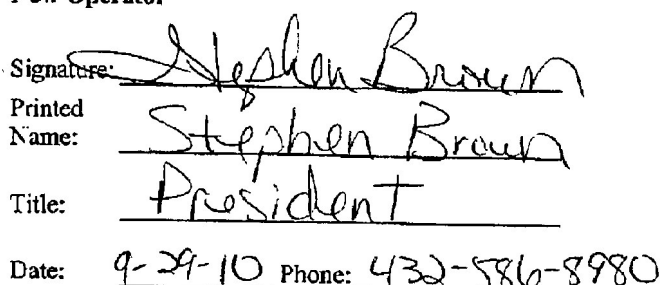 Operator
Signature: Stephen Brown
Printed
Name: Stephen Brown
Title: President
Date: 9-29-10 Phone: 432-586-8980